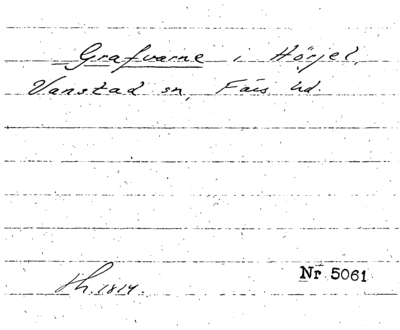 Grafvarne i Hörjel,
Vanstad sn, Färs hd.
Nr 5061
Th. 1814.